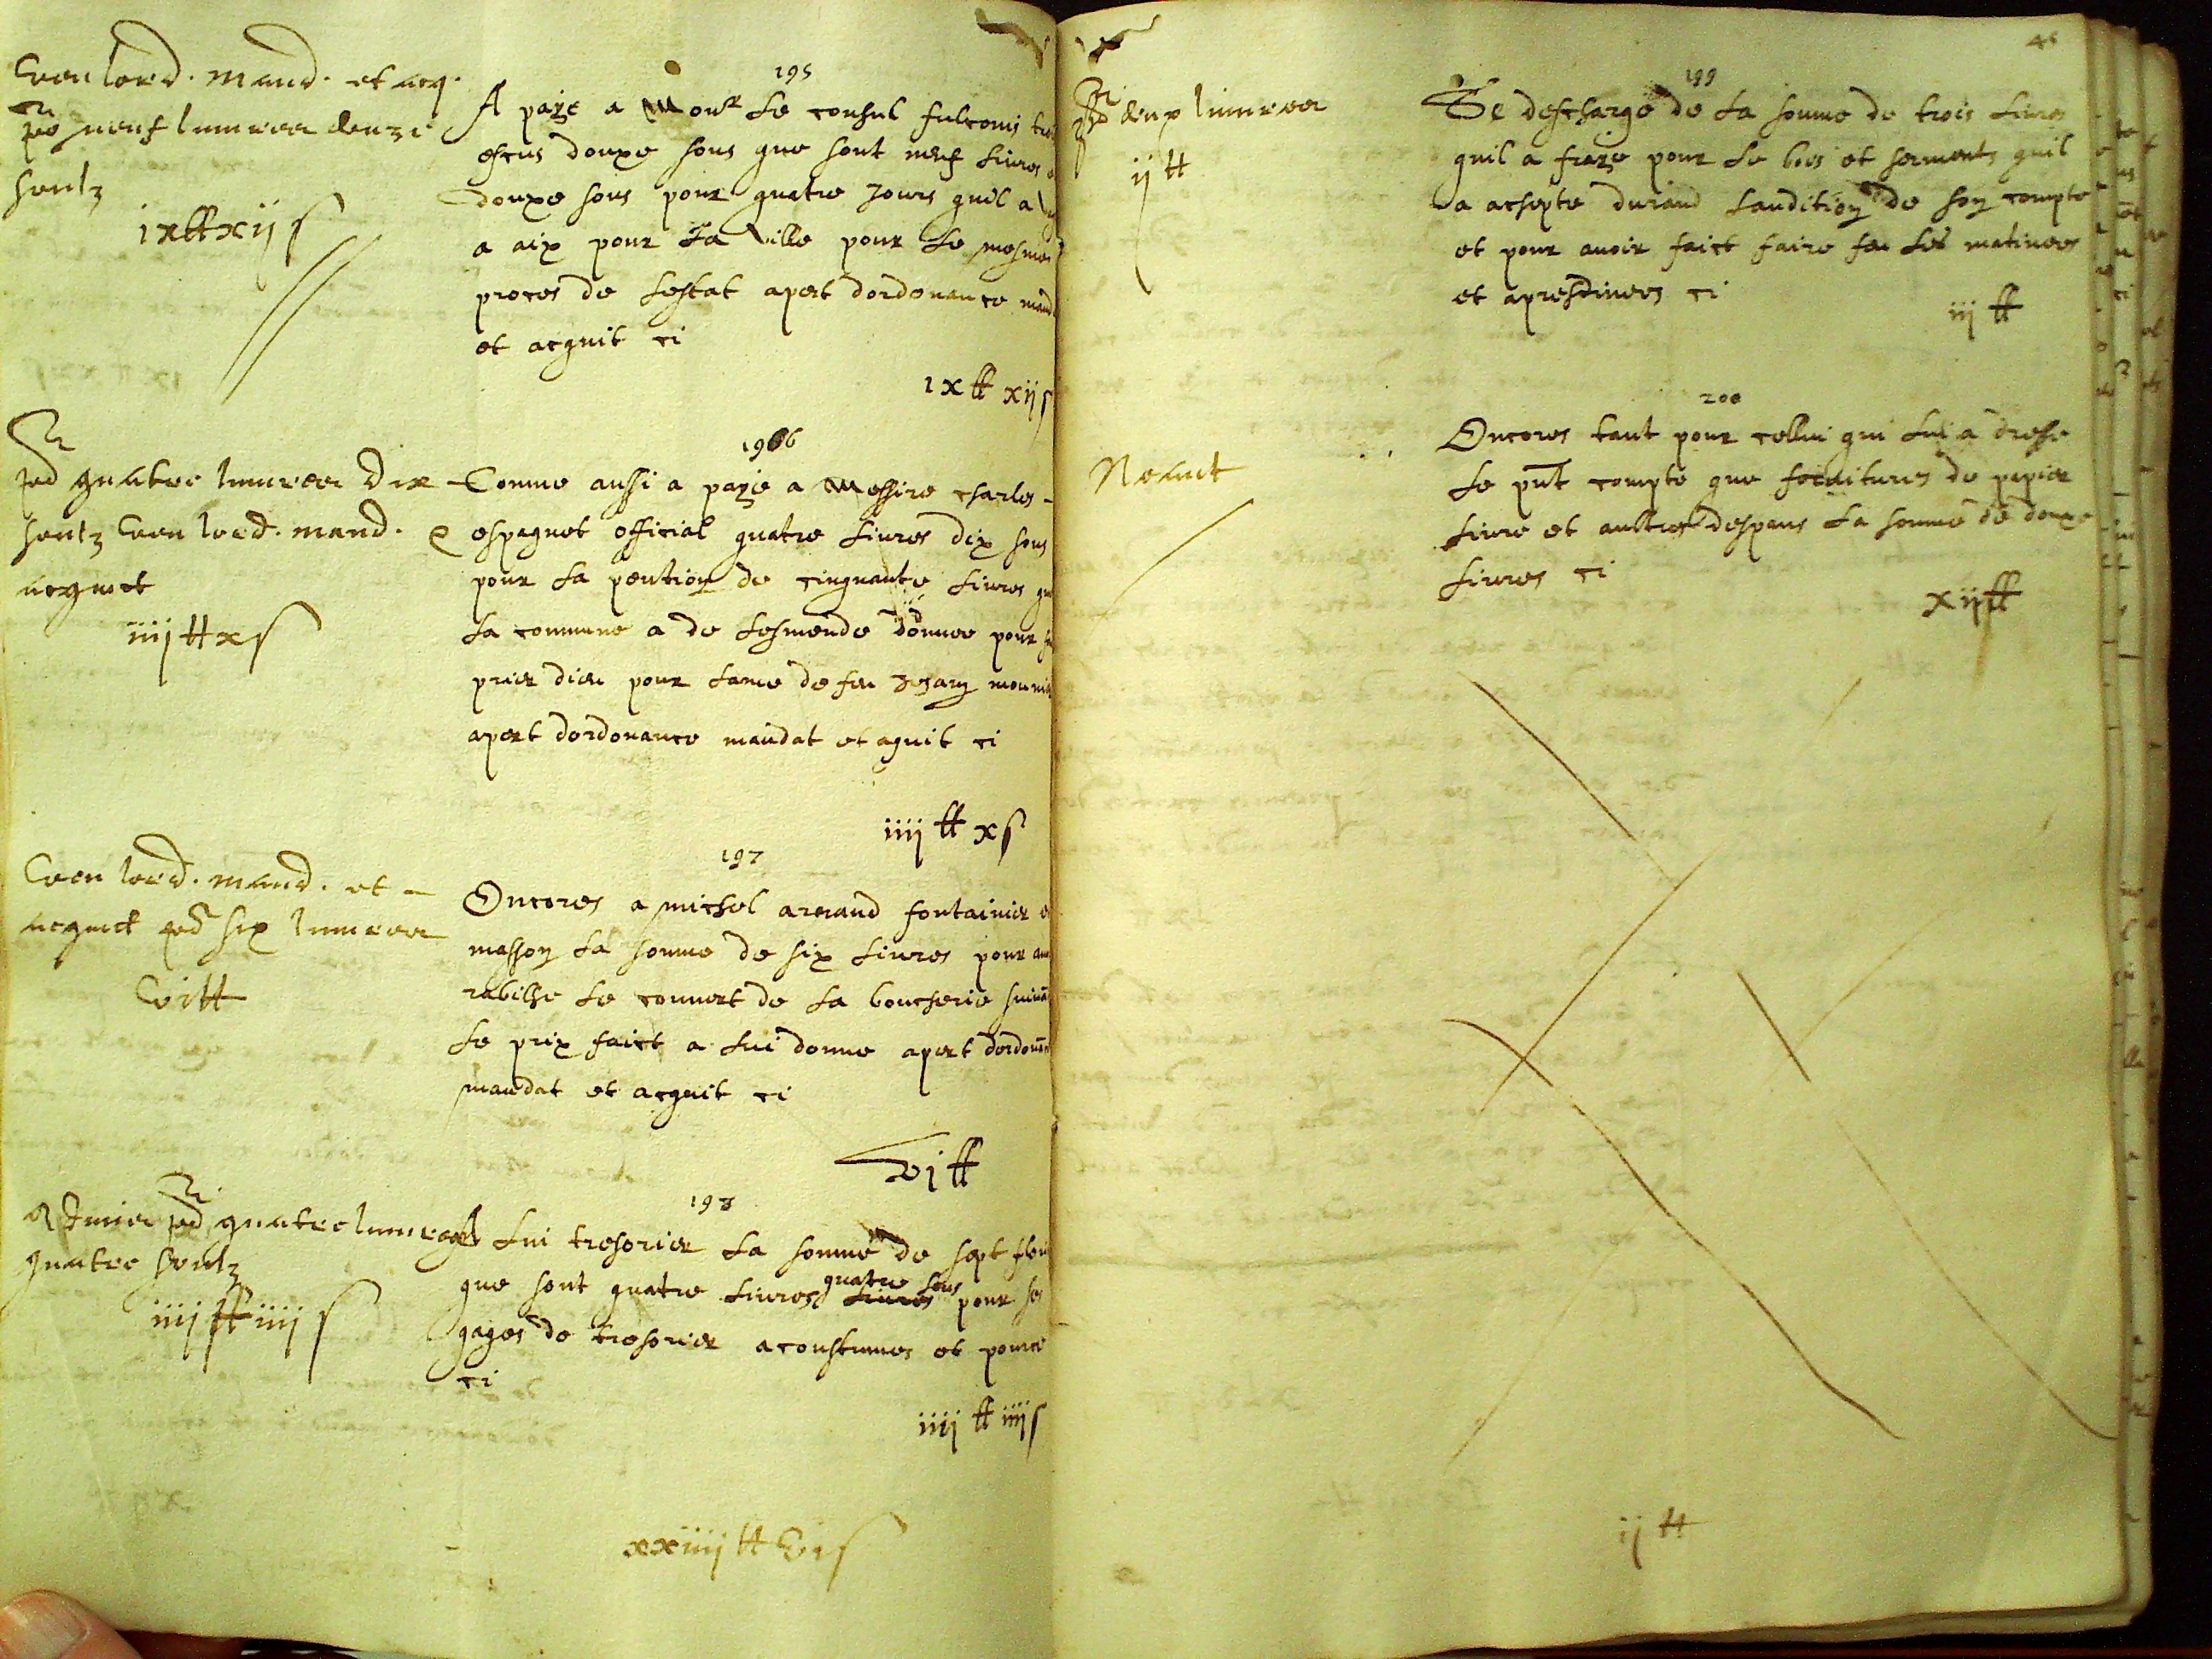 Veu lord. mand. et acq.
neuf livres douze
soulz
ixtt xij s
195
A paye a Monr le consul fulconis
escus douze sous que sont neuf livres
douze sous pour quatre jours quil a
a aix pour la ville pour le mesme
proces de lestat apert dordonance mand
et acquit ci
ixtt xij s
quatre livres dix
soulz veu lord. mand. e
acquict
iiij tt x s
196
Comme aussi a paye a Messire charles
espagnet official quatre livres dix sous
pour la pention de cinquante livres que
la commune a de lesmende donnee pour
prier dieu pour lame de feu mounier
apert dordonance mandat et aquit ci
iiij tt x s
Veu lord. mand. et
acquict six livres
vi tt
197
Encores a michel arnaud fontainier
masson la somme de six livres pour
rabilhe le couvert de la boucherie suivã
le prix faict a lui donne apert
mandat et acquit ci
vj tt
quatre livres
quatre soulz
iiij tt iiij s
198
A lui tresorier la somme de sept
que sont quatre livres quatre sous livres pour ses
gages de tresorier acoustumes et pource
ci
iiij tt iiij s
xxiiij tt vi s
46
deux livres
ij tt
199
Se descharge de la somme de trois livres
quil a fraye pour le bois et serments quil
a achepte durand laudition de son compte
et pour avoir faict faire feu les matinees
et apresdinees ci
iij tt
Neant
200
Encores tant pour cellui qui lui a dresse
le pnt compte que fornitures de papier
livre et aultres despans la somme de douze
livres ci
xij tt
ij tt